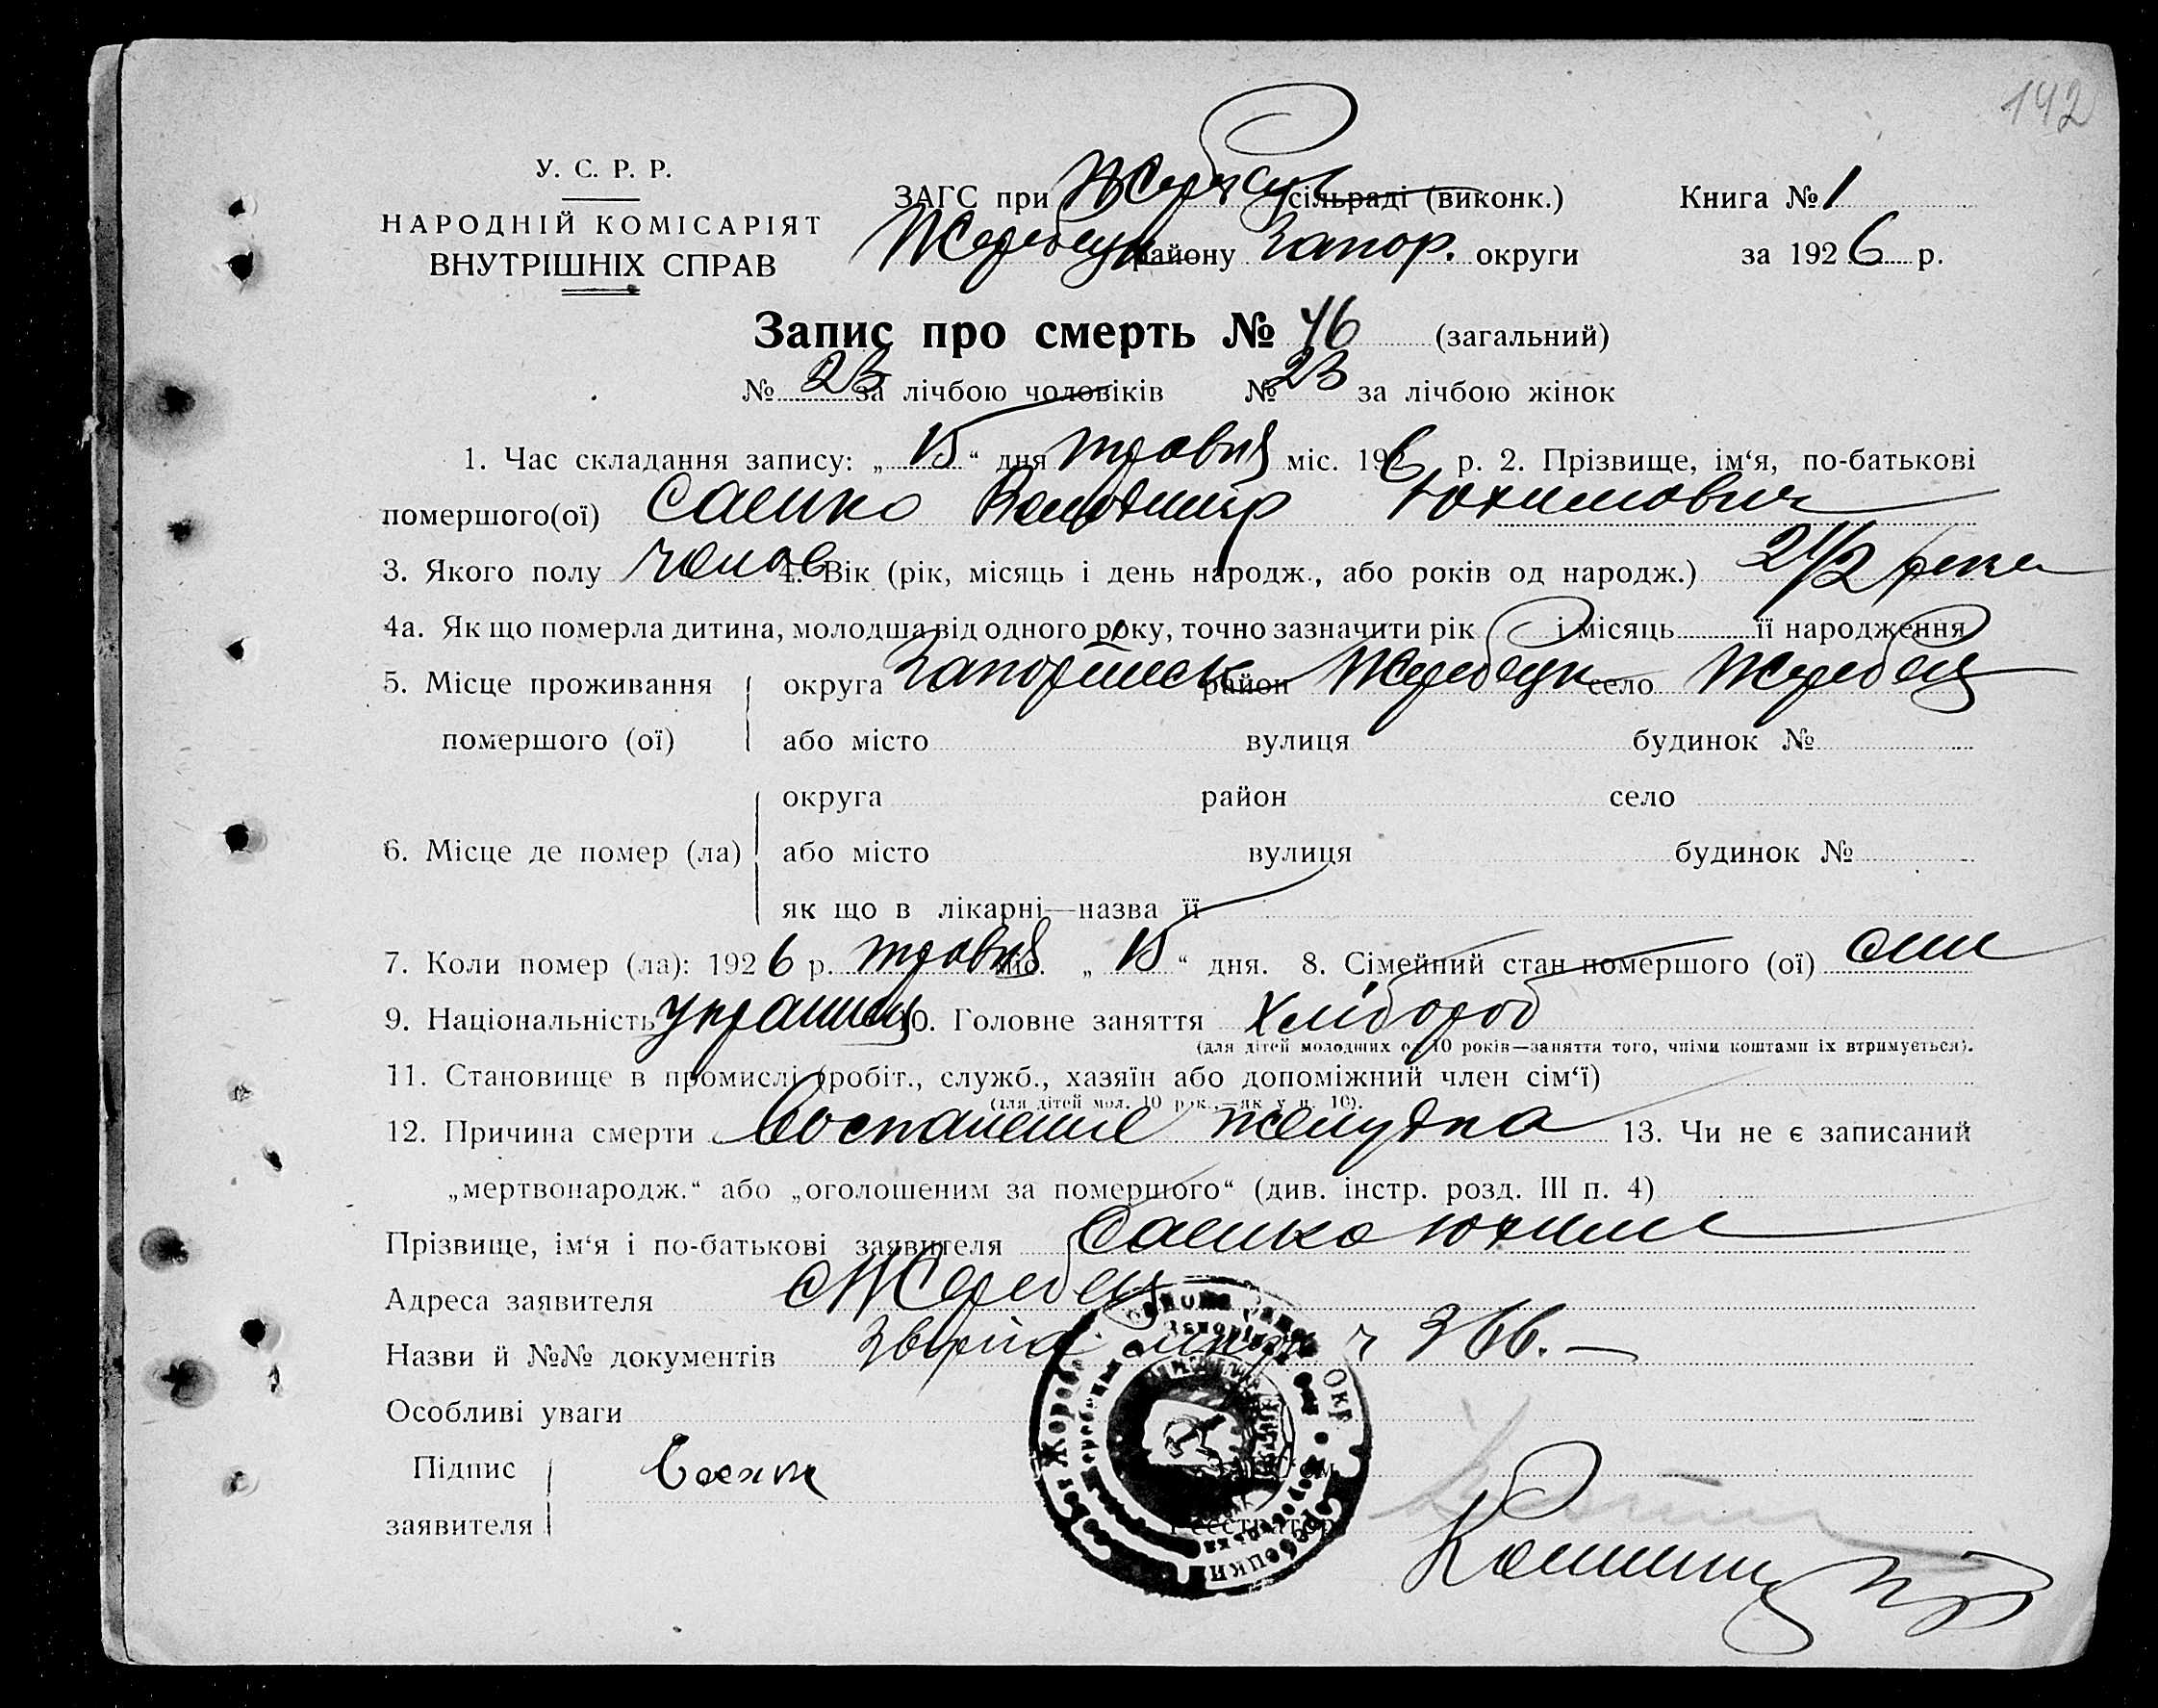 142
У. С. Р. Р.
НАРОДНІЙ КОМІСАРІЯТ
ВНУТРІШНІХ СПРАВ
ЗАГС при Жеребец сільраді (виконк.)
Жеребецк району Запор. округи
Книга № 1
за 1926 р.
Запис про смерть № 46 (загальний)
№ 23 за лічбою чоловіків № 23 за лічбою жінок
1. Час складання запису: „15“ дня травня міс. 1926 р. 2. Прізвище, ім‘я, по-батькові
помершого(ої) Саенко Володимир Юхимович
3. Якого полу чолов 4. Вік (рік, місяць і день народж., або років од народж.) 2 1/2 роки
4а. Як що померла дитина, молодша від одного року, точно зазначити рік і місяць її народження
5. Місце проживання помершого (ої) округа Запоріжськ район Жеребецк село Жеребец
або місто вулиця будинок №
округа район село
6. Місце де помер (ла) або місто вулиця будинок №
як що в лікарні—назва її
7. Коли помер (ла): 1926 р. травня міс. „15“ дня. 8. Сімейний стан помершого (ої)
9. Національність українец 10. Головне заняття Хлібороб
(для дітей молодших од 10 років—заняття того, чиїми коштами їх втримується).
11. Становище в промислі (робіт., служб., хазяїн або допоміжний член сім‘ї)
(для дітей мол. 10 рок.,—як у п. 10).
12. Причина смерти воспаление желудка 13. Чи не є записаний
„мертвонародж.“ або „оголошеним за помершого“ (див. інстр. розд. III п. 4)
Прізвище, ім‘я і по-батькові заявителя Саенко Юхим
Адреса заявителя с Жеребец
Назви й №№ документів 366. —
Особливі уваги
Підпис
заявителя
Реєстратор